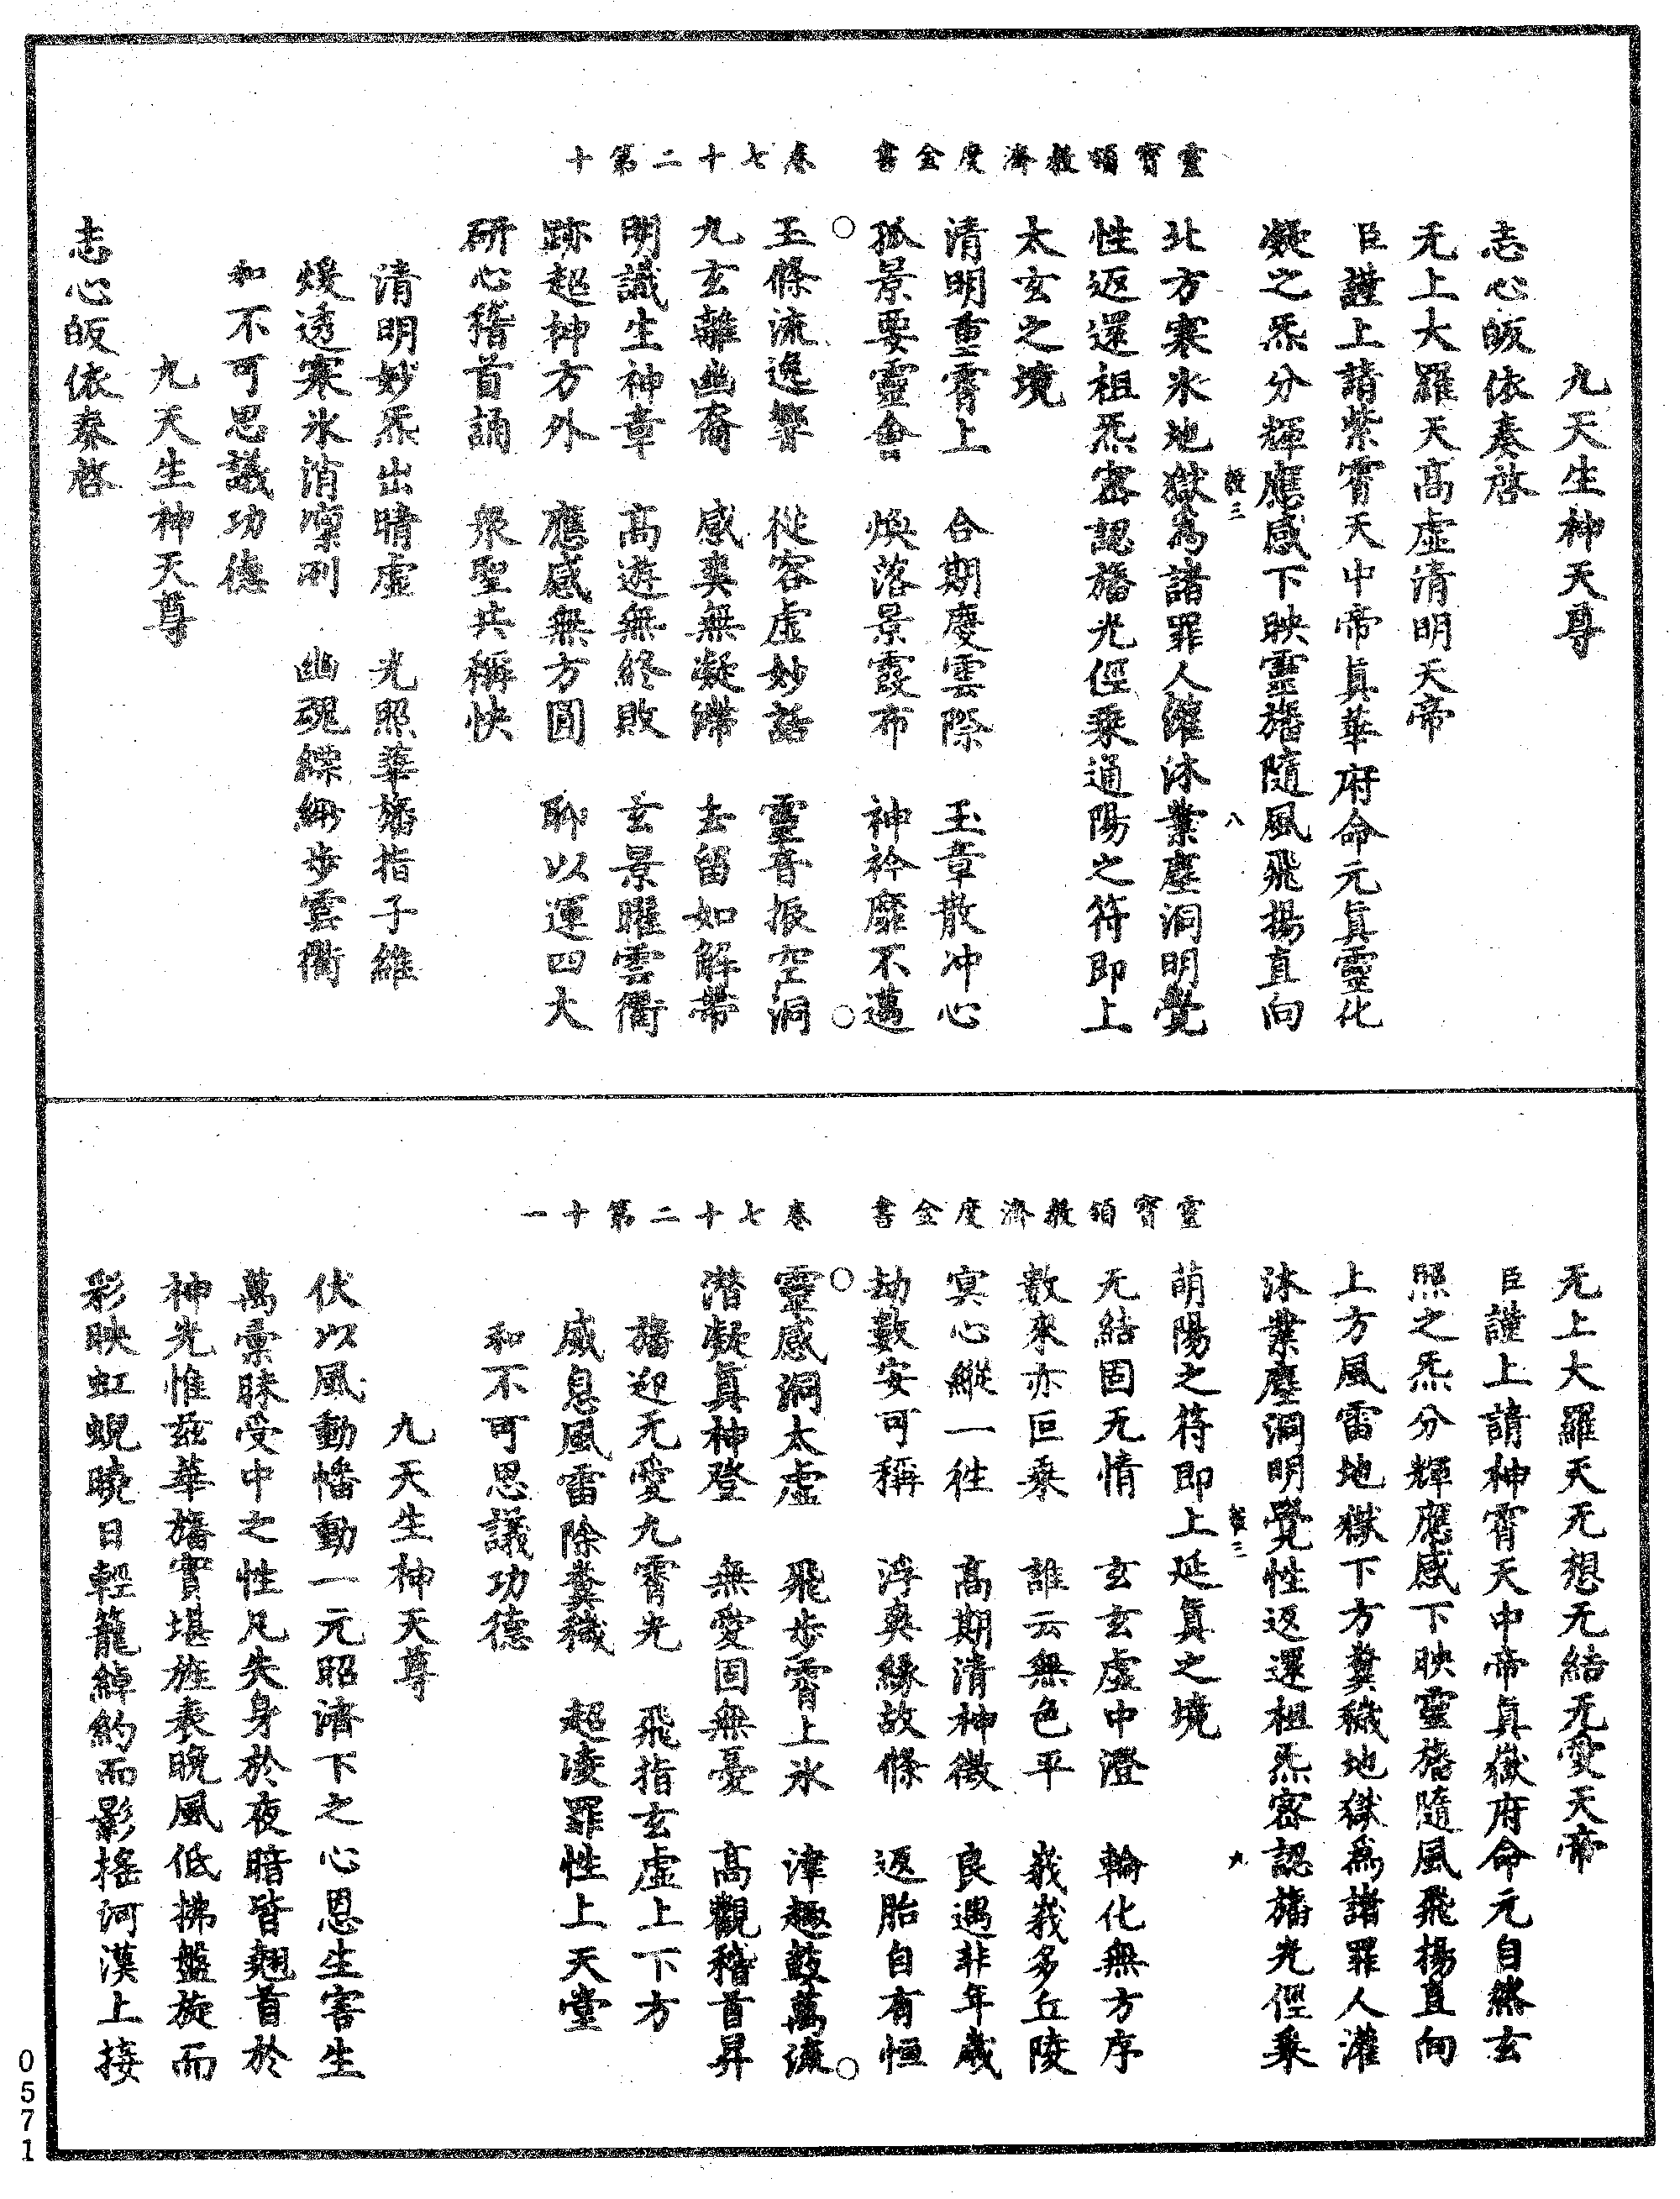 靈寶領教濟度金書　卷七十二第十
九天生神天尊
志心皈依奏啓
无上大羅天高虛清明天帝
臣謹上請紫霄天中帝真華府命元真靈化
凝之炁分輝應感下映靈旛隨風飛揚直向
三　八
北方寒氷地獄為諸罪人灌沐業塵洞明覺
性返還祖炁密認旛光徑乘通陽之符即上
太玄之境
清明重霄上　合期慶雲際　玉章散冲心
孤景要靈會　煥落景霞布　神衿靡不邁
○　○
玉條流逸響　從容虛妙話　靈音振空洞
九玄離幽裔　感爽無凝滯　去留如解帶
明識生神章　高遊無終敗　玄景曜雲衢
跡超神方外　應感無方圓　聊以運四大
研心稽首誦　衆聖共稱快
清明妙炁出晴虛　光照華旛指子維
煖透寒氷消凜冽　幽魂縹緲步雲衢
和不可思議功德
九天生神天尊
志心皈依奏啓
靈寶領教濟度金書　卷七十二第十一
无上大羅天无想无結无愛天帝
臣謹上請神霄天中帝真嶽府命元自然玄
照之炁分輝應感下映靈旛隨風飛揚直向
上方風雷地獄下方糞穢地獄為諸罪人灌
沐業塵洞明覺性返還祖炁密認旛光徑乘
三　九
萌陽之符即上延真之境
无結固无情　玄玄虛中澄　輪化無方序
數來亦叵乘　誰云無色平　峩峩多丘陵
冥心縱一往　高期清神徵　良遇非年歲
劫數安可稱　浮爽緣故條　返胎自有恒
○　○
靈感洞太虛　飛步霄上氷　津趣鼓萬流
潛凝真神登　無愛固無憂　高觀稽首昇
旛迎无愛九霄光　飛指玄虛上下方
威息風雷除糞穢　超凌罪性上天堂
和不可思議功德
九天生神天尊
伏以風動幡動一元昭濟下之心恩生害生
萬彙昧受中之性凡失身於夜暗皆翹首於
神光惟茲華旛實堪旌表晚風低拂盤旋而
彩映虹蜺曉日輕籠綽約而影搖河漢上接
0571